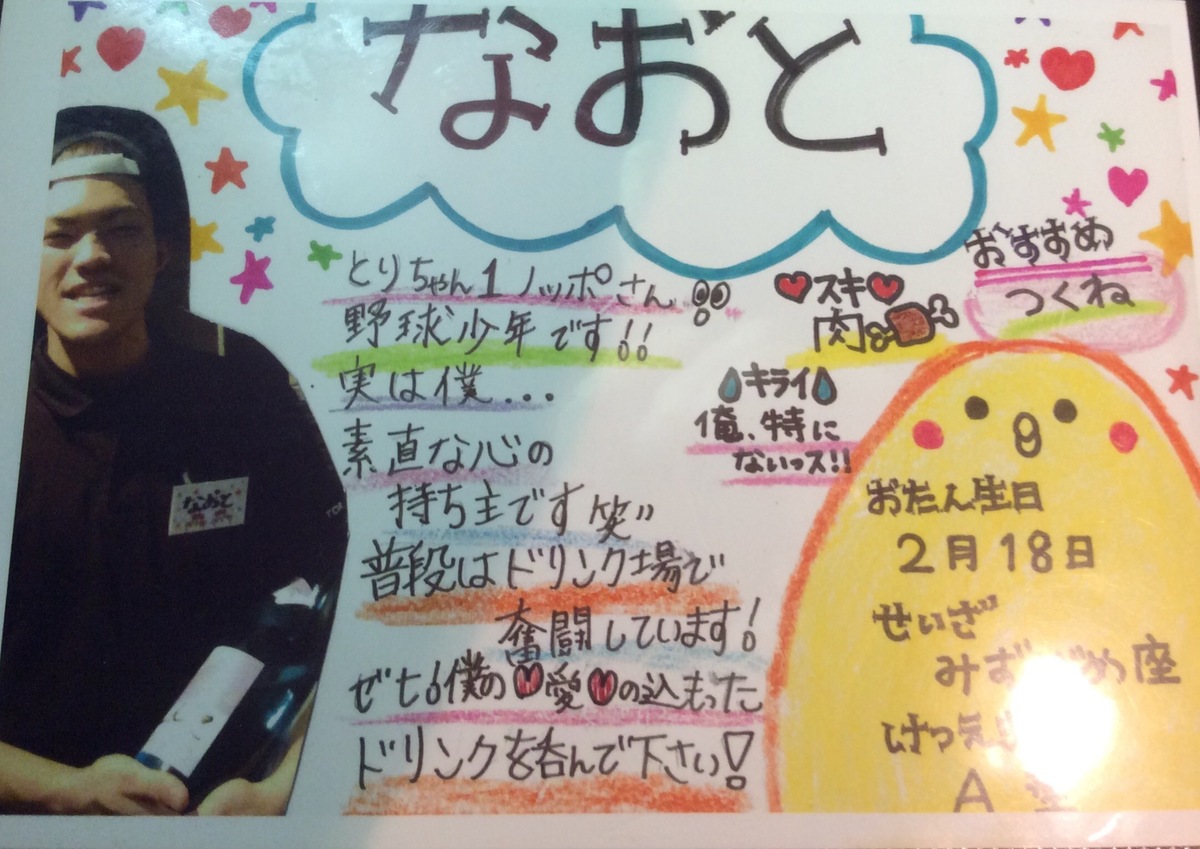 なおと
とりちゃん1ノッポさん
野球少年です!!
実は僕...
素直な心の
持ち主です笑"
普段はドリンク場で
奮闘しています!
ぜひ!僕の♥愛♥の込もった
ドリンクを呑んで下さい!
♥スキ♥
肉
キライ
俺、特に
ないっス!!
おすすめ
つくね
おたん生日
2月18日
せいざ
みずがめ座
けつ気
A型
なおと